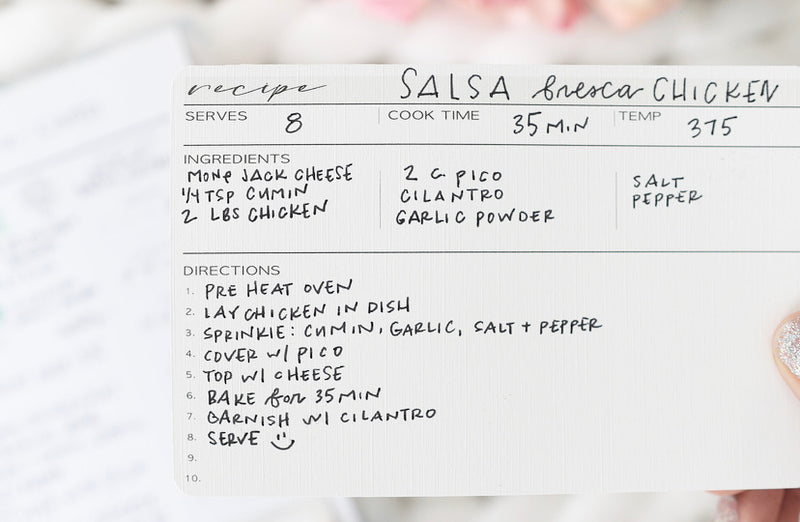 recipe SALSA fresca CHICKEN
SERVES 8 COOK TIME 35 MIN TEMP 375
INGREDIENTS
MONE JACK CHEESE 2 C. PICO SALT
1/4 TSP CUMIN CILANTRO PEPPER
2 LBS CHICKEN GARLIC POWDER
DIRECTIONS
1. PRE HEAT OVEN
2. LAY CHICKEN IN DISH
3. SPRINKLE: CUMIN, GARLIC, SALT + PEPPER
4. COVER W/ PICO
5. TOP W/ CHEESE
6. BAKE for 35 MIN
7. GARNISH W/ CILANTRO
8. SERVE
9.
10.